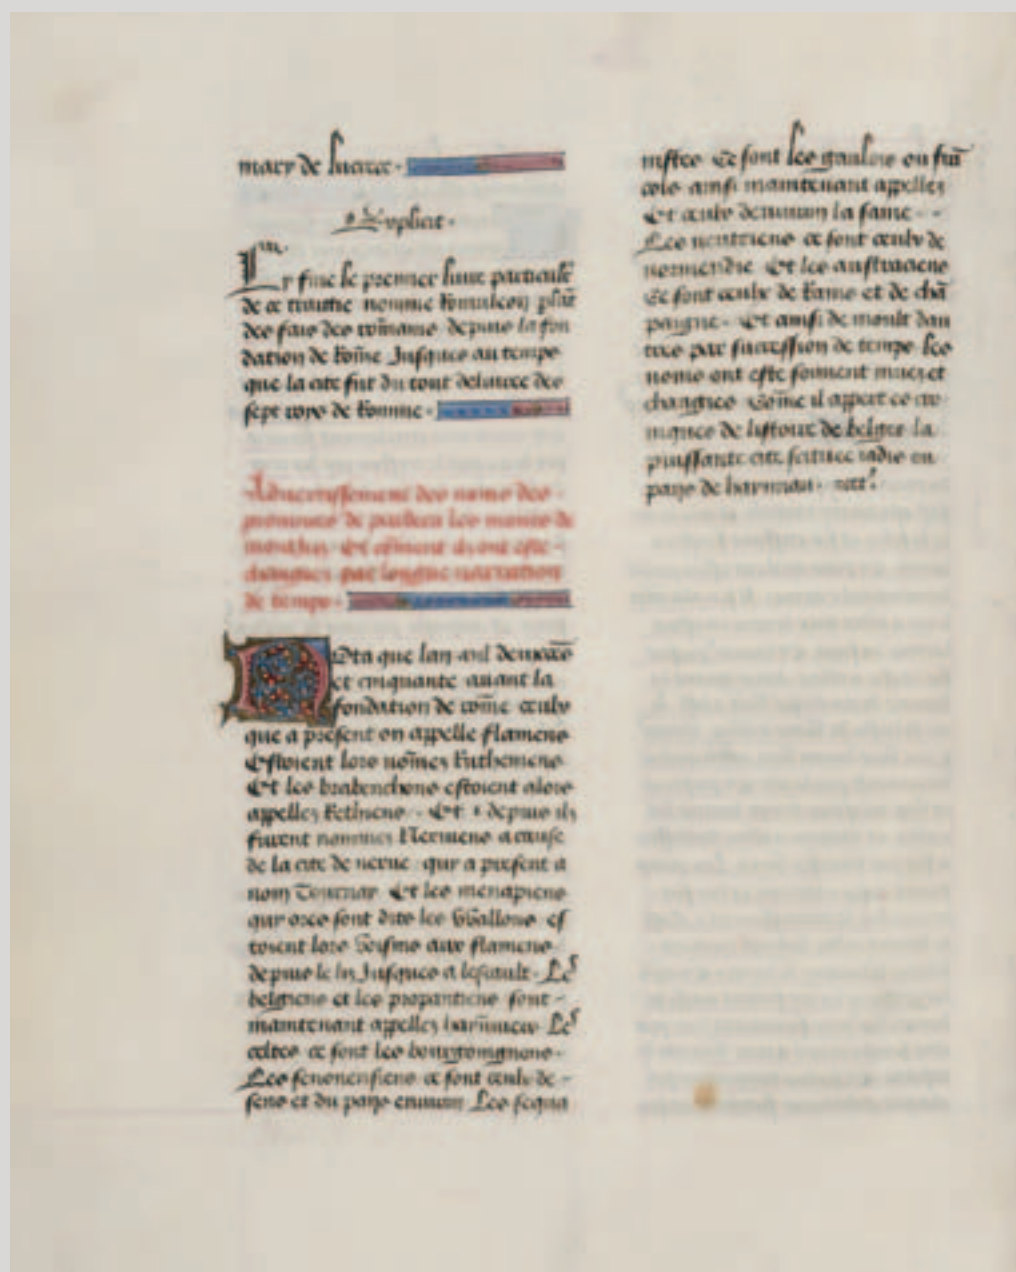 mary de lucrece.
Explicit.
Cy fine le premier livre particuler
de ce traittie nomme Romuleon plain
des fais des romains depuis la fon
dation de Rome Jusques au temps
que la cite fut du tout delivree des
sept roys de Romme.
Advertissement des noms des
de pardeca les mons de
Et comment ilz ont este
changies par longue
de temps.
Nota que lan mil deux cens
et cinquante avant la
fondation de rome ceulx
que a present on appelle flamens
Estoient lors nommes Ruthemiens
Et les brabenchons estoient alors
appelles Rethiens. Et depuis ilz
furent nommes Nerviens a cause
de la cite de nerve qui a present a
nom Tournay Et les menapiens
qui ores sont dits les Wallons es
toient lors voisins aux flamens
depuis le lis Jusques a lescault. Les
belgiens et les propontiens sont
maintenant appelles hannuiers Les
celtes ce sont les bourgoingnons.
Les senonensiens ce sont ceulx de
sens et du pays environ Les sequa
nistes Ce sont les gaulois ou fran
cois ainsi maintenant appelles
Et ceulx denviron la saine
Les neutriens ce sont ceulx de
normendie Et les austrasiens
Ce sont ceulx de Rains et de cham
paigne. Et ainsi de moult dau
tres par succession de temps les
noms ont este souvent muez et
changies Comme il appert es cro
niques de listoire de belges la
puissante cite scituee jadis en
pays de haynnau. etc.